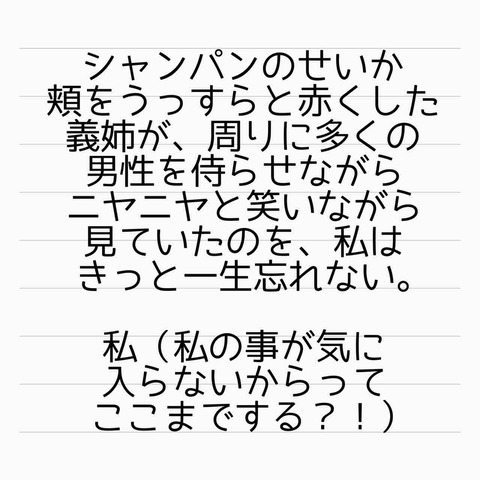 シャンパンのせいか
頬をうっすらと赤くした
義姉が、周りに多くの
男性を侍らせながら
ニヤニヤと笑いながら
見ていたのを、私は
きっと一生忘れない。
私（私の事が気に
入らないからって
ここまでする？！）